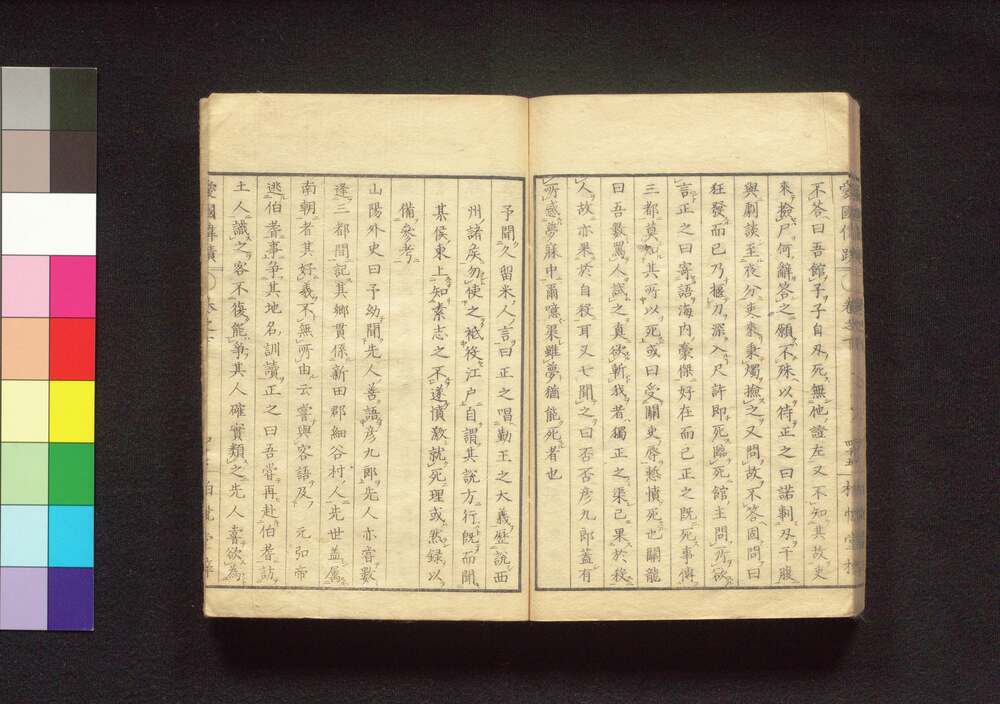 不答曰吾館子子自刄死無他證左又不知其故吏
來撿尸何辭答之願不殊以待正之曰諾剚刄于腹
與劇談至夜分吏來秉燭撿之又問故不答固問曰
狂發而已乃握刀深入尺許即死臨死館主問所欲
言正之曰寄語海内豪傑好在而已正之既死事傳
三都莫知其所以死或曰受關吏辱愁憤死也關龍
曰吾數罵人試之真欲斬我者獨正之渠已果於殺
人故亦果於自殺耳又七聞之曰否否彦九郎蓋有
所感夢寐中爾噫渠雖夢猶能死者也
予聞久留米人言曰正之唱勤王之大義歴說西
州諸侯勿使之祗役江户自謂其説方行既而聞
某侯東上知素志之不遂憤激就死理或然録以
備參考
山陽外史曰予幼聞先人善語彦九郎先人亦嘗數
逢三都間記其鄉貫係新田郡細谷村人先世蓋屬
南朝者其好義不無所由云嘗與客語及元弘帝
逃伯耆事爭其地名訓讀正之曰吾嘗再赴伯耆訪
土人識之客不復能爭其人確實類之先人喜欲為
愛國